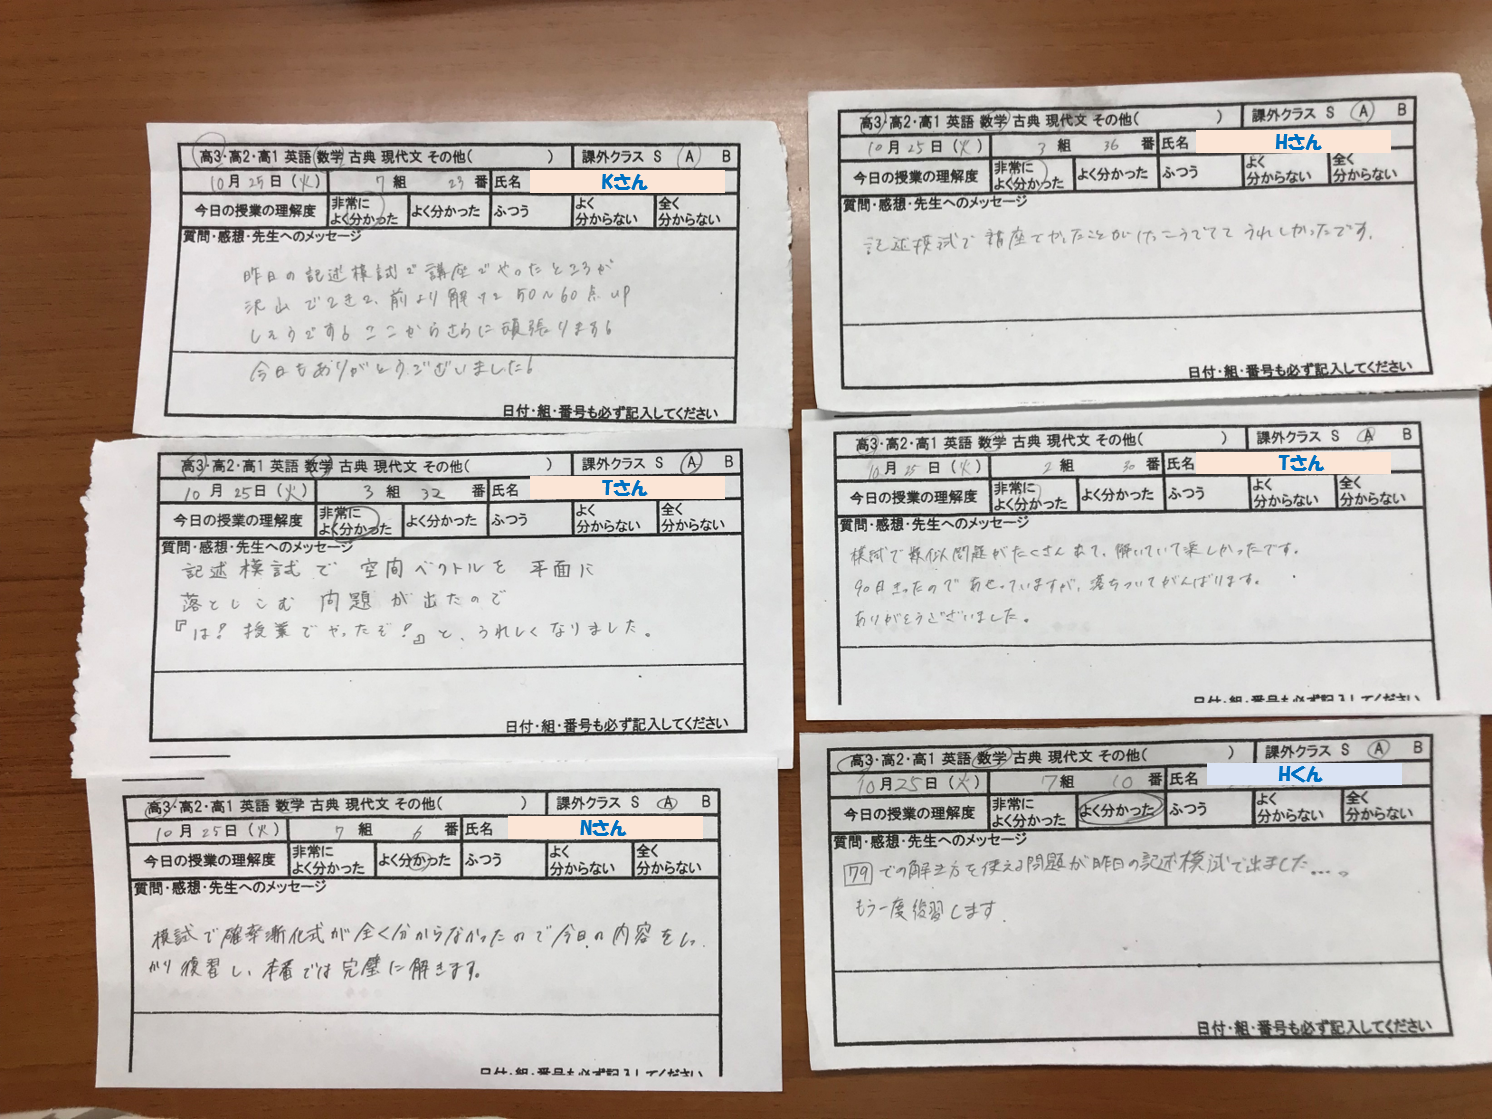 高3・高2・高1 英語 数学 古典 現代文 その他( ) 課外クラス S A B
10月 25日 (火) 7 組 23 番 氏名 Kさん
今日の授業の理解度 非常によく分かった よく分かった ふつう よく分からない 全く分からない
質問・感想・先生へのメッセージ
昨日の記述模試で講座でやったところが
沢山でてきて、前より解けて50〜60点up
しそうです! ここからさらに頑張ります!
今日もありがとうございました!
日付・組・番号も必ず記入してください
高3・高2・高1 英語 数学 古典 現代文 その他( ) 課外クラス S A B
10月 25日 (火) 3 組 32 番 氏名 Tさん
今日の授業の理解度 非常によく分かった よく分かった ふつう よく分からない 全く分からない
質問・感想・先生へのメッセージ
記述模試で 空間ベクトルを 平面に
落としこむ 問題 が出たので
『は? 授業でやったぞ!』と、うれしくなりました。
日付・組・番号も必ず記入してください
高3・高2・高1 英語 数学 古典 現代文 その他( ) 課外クラス S A B
10月 25日 (火) 7 組 6 番 氏名 Nさん
今日の授業の理解度 非常によく分かった よく分かった ふつう よく分からない 全く分からない
質問・感想・先生へのメッセージ
模試で確率漸化式が全く分からなかったので今日の内容をしっ
かり復習し、本番では完璧に解きます。
日付・組・番号も必ず記入してください
高3・高2・高1 英語 数学 古典 現代文 その他( ) 課外クラス S A B
10月 25日 (火) 3 組 36 番 氏名 Hさん
今日の授業の理解度 非常によく分かった よく分かった ふつう よく分からない 全く分からない
質問・感想・先生へのメッセージ
記述模試で講座でやったことがけっこうでてて うれしかったです。
日付・組・番号も必ず記入してください
高3・高2・高1 英語 数学 古典 現代文 その他( ) 課外クラス S A B
10月 25日 (火) 2 組 30 番 氏名 Tさん
今日の授業の理解度 非常によく分かった よく分かった ふつう よく分からない 全く分からない
質問・感想・先生へのメッセージ
模試で類似問題がたくさんあて、解いていて楽しかったです。
90日きったのであせっていますが、落ちついてがんばります。
ありがとうございました。
日付・組・番号も必ず記入してください
高3・高2・高1 英語 数学 古典 現代文 その他( ) 課外クラス S A B
10月 25日 (火) 7 組 10 番 氏名 Hくん
今日の授業の理解度 非常によく分かった よく分かった ふつう よく分からない 全く分からない
質問・感想・先生へのメッセージ
79 での解き方を使える問題が昨日の記述模試で出ました...。
もう一度復習します.
日付・組・番号も必ず記入してください